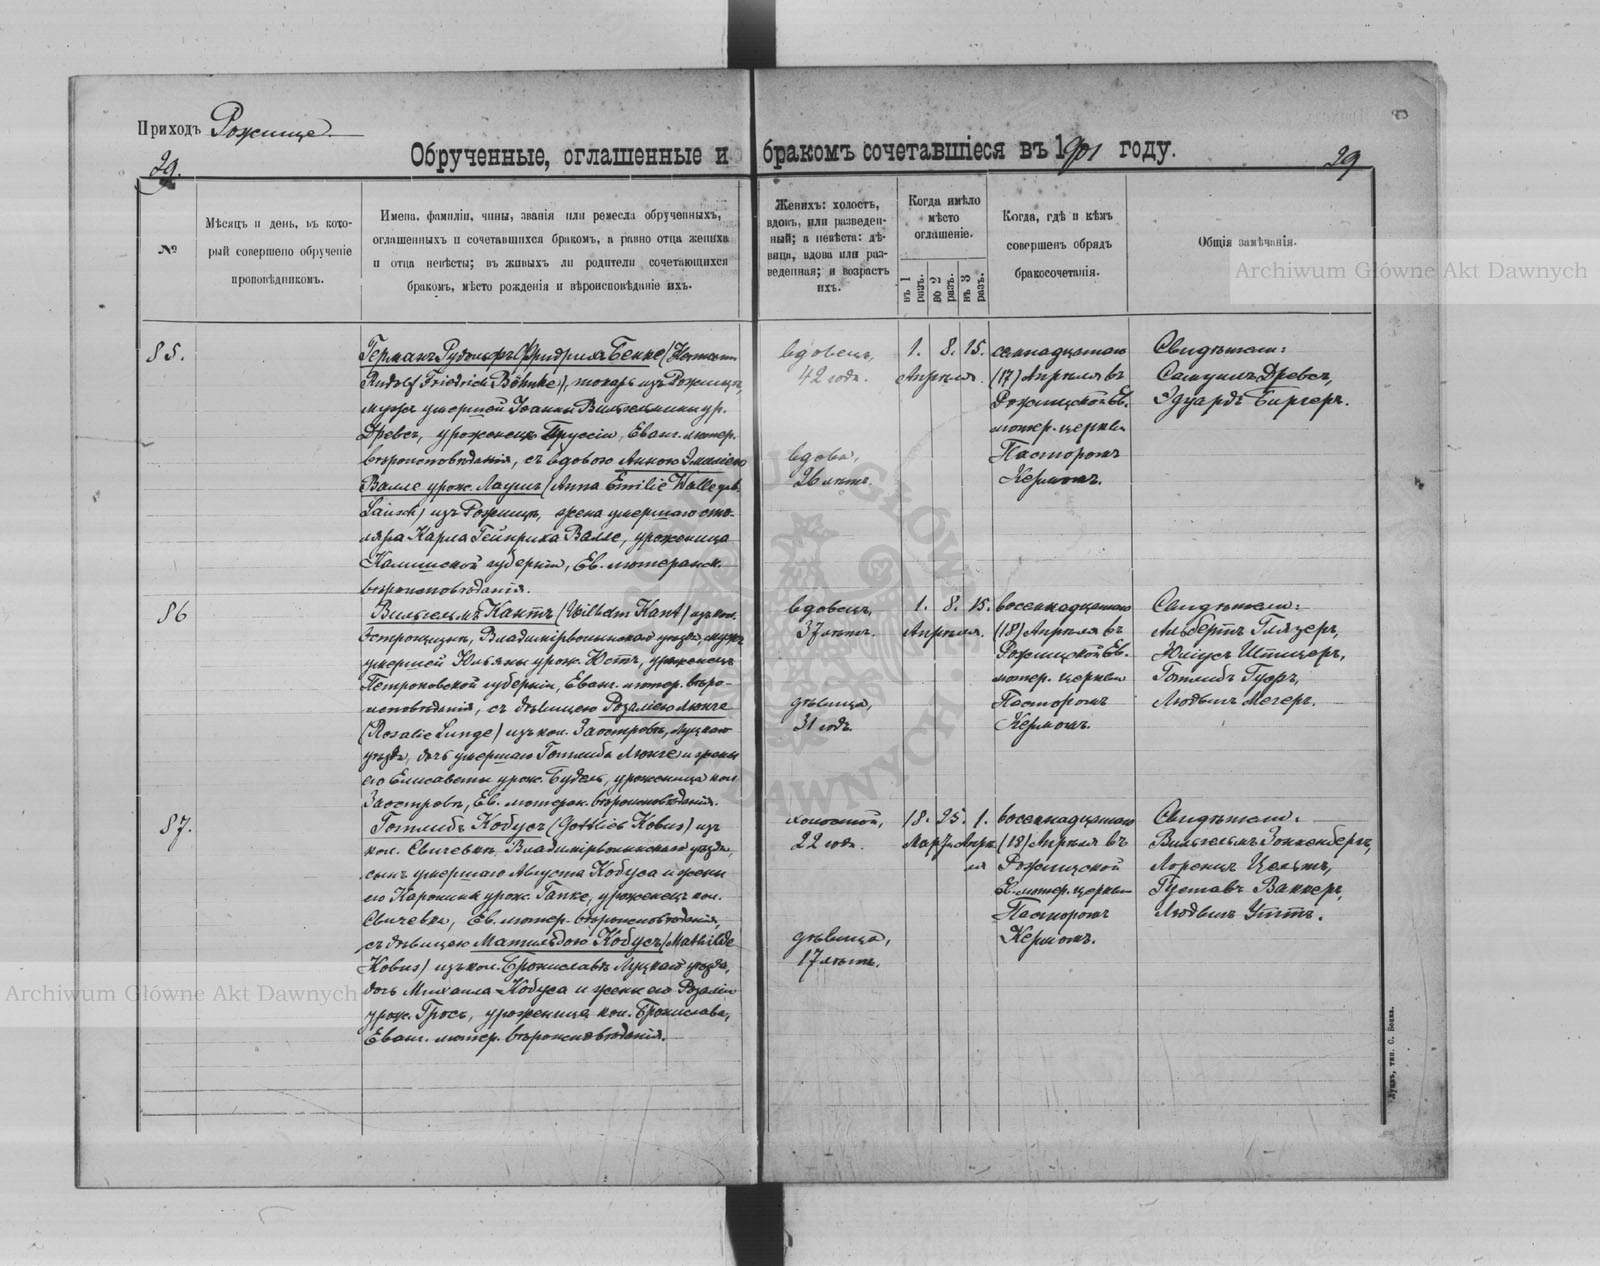 Приходъ Рожище
29.
Обрученные, оглашенные и бракомъ сочетавшіеся въ 1901 году.
29
№
Мѣсяцъ и день, въ кото-
рый совершено обрученіе
проповѣдникомъ.
Имена, фамиліи, чины, званія или ремесла обрученныхъ,
оглашенныхъ и сочетавшихся бракомъ, а равно отца жениха
и отца невѣсты; въ живыхъ ли родители сочетающихся
бракомъ, мѣсто рожденія и вѣроисповѣданіе ихъ.
Женихъ: холостъ,
вдовъ, или разведен-
ный; а невѣста: дѣ-
вица, вдова или раз-
веденная; и возрастъ
ихъ.
Когда имѣло
мѣсто
оглашеніе.
въ 1
разъ.
во 2
разъ.
въ 3
разъ.
Когда, гдѣ и кѣмъ
совершенъ обрядъ
бракосочетанія.
Общія замѣчанія.
Archiwum Główne Akt Dawnych
85.
Германъ Рудольфъ Фридрихъ Бенке (Hermann
Rudolf Friedrich Böhnke), токарь изъ Рожищъ,
мужъ умершей Іоанны Вильгельмины ур.
Древсъ, уроженецъ Пруссіи, Еванг. лютер.
вѣроисповѣданія, съ вдовою Анною Эмиліею
Валле урож. Лаушъ (Anna Emilie Walle geb.
Lausch) изъ Рожищъ, жена умершаго сто-
ляра Карла Гейнриха Валле, уроженица
Калишской губерніи, Ев. лютеранск.
вѣроисповѣданія.
вдовецъ,
42 годъ.
вдова,
26 лѣтъ.
1. 8. 15.
Апрѣля.
семнадцатаго
(17) Апрѣля въ
Рожищской Ев.
лютер. церкви
Пасторомъ
Кермомъ.
Свидѣтели:
Самуилъ Древсъ,
Эдуардъ Биргеръ.
86
Вильгельмъ Кантъ (Wilhelm Kant) изъ кол.
Островщизны, Владимірволынскаго уѣзда, мужъ
умершей Юльяны урож. Юстъ, уроженецъ
Петроковской губерніи, Еванг. лютер. вѣро-
исповѣданія, съ дѣвицею Розаліею Люнге
(Rosalie Lunge) изъ кол. Заостровъ, Луцкаго
уѣзда, дочь умершаго Готлиба Люнге и жены
его Елисаветы урож. Будель, уроженица кол.
Заостровъ, Ев. лютеран. вѣроисповѣданія.
вдовецъ,
37 лѣтъ.
дѣвица,
31 годъ.
1. 8. 15.
Апрѣля.
восемнадцатаго
(18) Апрѣля въ
Рожищской Ев.
лютер. церкви
Пасторомъ
Кермомъ.
Свидѣтели:
Альбертъ Глязеръ,
Юліусъ Штицеръ,
Готлибъ Гузръ,
Людвигъ Мегеръ.
87.
Готлибъ Кобусъ (Gottlieb Kobus) изъ
кол. Свичевки, Владимірволынскаго уѣзда,
сынъ умершаго Августа Кобуса и жены
его Каролины урож. Гапке, уроженецъ кол.
Свичевки, Ев. лютер. вѣроисповѣданія,
съ дѣвицею Матильдою Кобусъ (Mathilde
Kobus) изъ кол. Брониславки Луцкаго уѣзда,
дочь Михаила Кобуса и жены его Розаліи
урож. Гросъ, уроженица кол. Бронислава,
Еванг. лютер. вѣроисповѣданія.
холостой,
22 годъ.
дѣвица,
17 лѣтъ.
18. 25. 1.
Марта Апрѣ
ля
восемнадцатаго
(18) Апрѣля въ
Рожищской
Ев. лютер. церкви
Пасторомъ
Кермомъ.
Свидѣтели:
Вильгельмъ Зонненбергъ,
Лоренцъ Цельтъ,
Густавъ Ваккеръ,
Людвигъ Уттъ.
Archiwum Główne Akt Dawnych
Луцкъ, тип. С. Бонка.